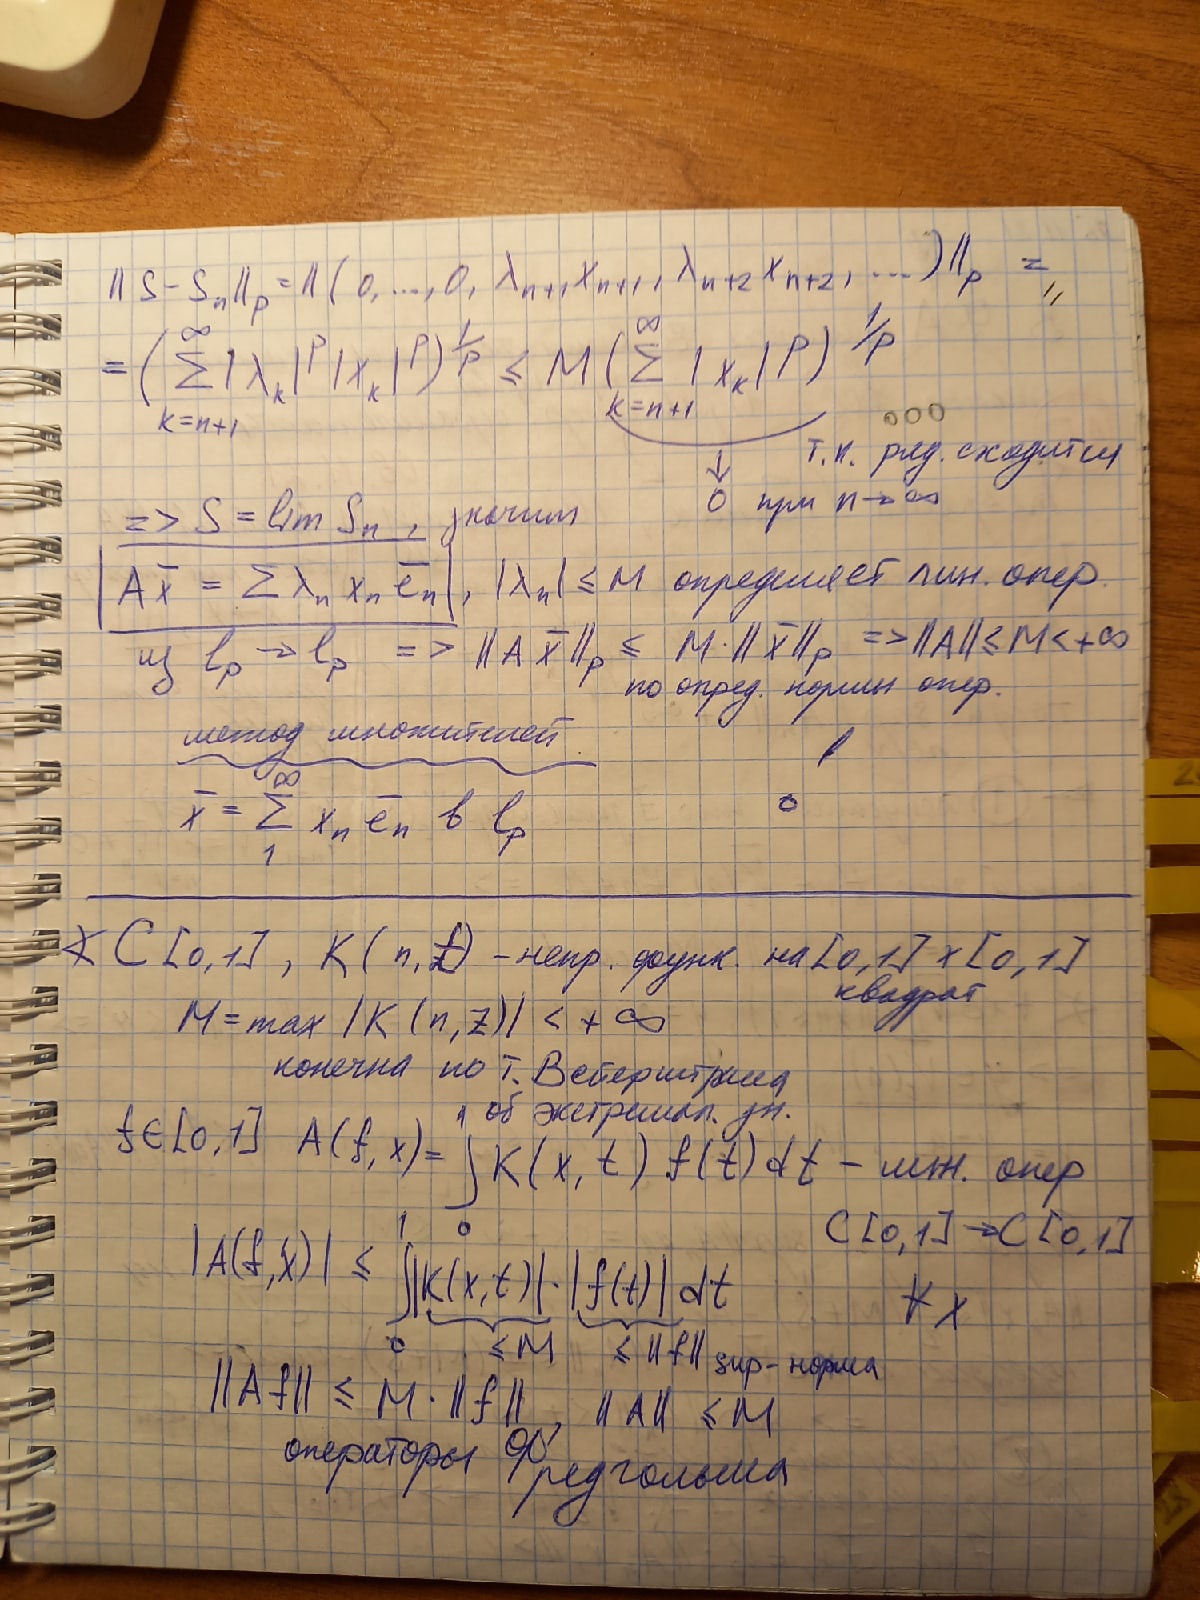 ‖S - Sₙ‖ₚ = ‖(0, ..., 0, λₙ₊₁xₙ₊₁, λₙ₊₂xₙ₊₂, ...)‖ₚ =
= (∑_{k=n+1}^{∞} |λₖ|^p |xₖ|^p)^{1/p} ≤ M (∑_{k=n+1}^{∞} |xₖ|^p)^{1/p}
т.к. ряд. сходится
↓
0 при n → ∞
=> S = lim Sₙ, значит
Ax̄ = ∑ λₙ xₙ ēₙ, |λₙ| ≤ M определяет лин. опер.
из lₚ → lₚ => ‖Ax̄‖ₚ ≤ M·‖x̄‖ₚ => ‖A‖ ≤ M < +∞
по опред. нормы опер.
метод множителей
x̄ = ∑_{1}^{∞} xₙ ēₙ в lₚ
C[0,1], K(n,z) - непр. функ. на [0,1] x [0,1]
квадрат
M = max |K(n,z)| < +∞
конечна по т. Вейерштрасса
об экстремал. зн.
f ∈ [0,1] A(f,x) = ∫₀¹ K(x,t) f(t) dt - лин. опер
C[0,1] → C[0,1]
|A(f,x)| ≤ ∫₀¹ |K(x,t)|·|f(t)| dt ∀x
≤ M ≤ ‖f‖ sup-норма
‖Af‖ ≤ M·‖f‖, ‖A‖ ≤ M
операторы Фредгольма